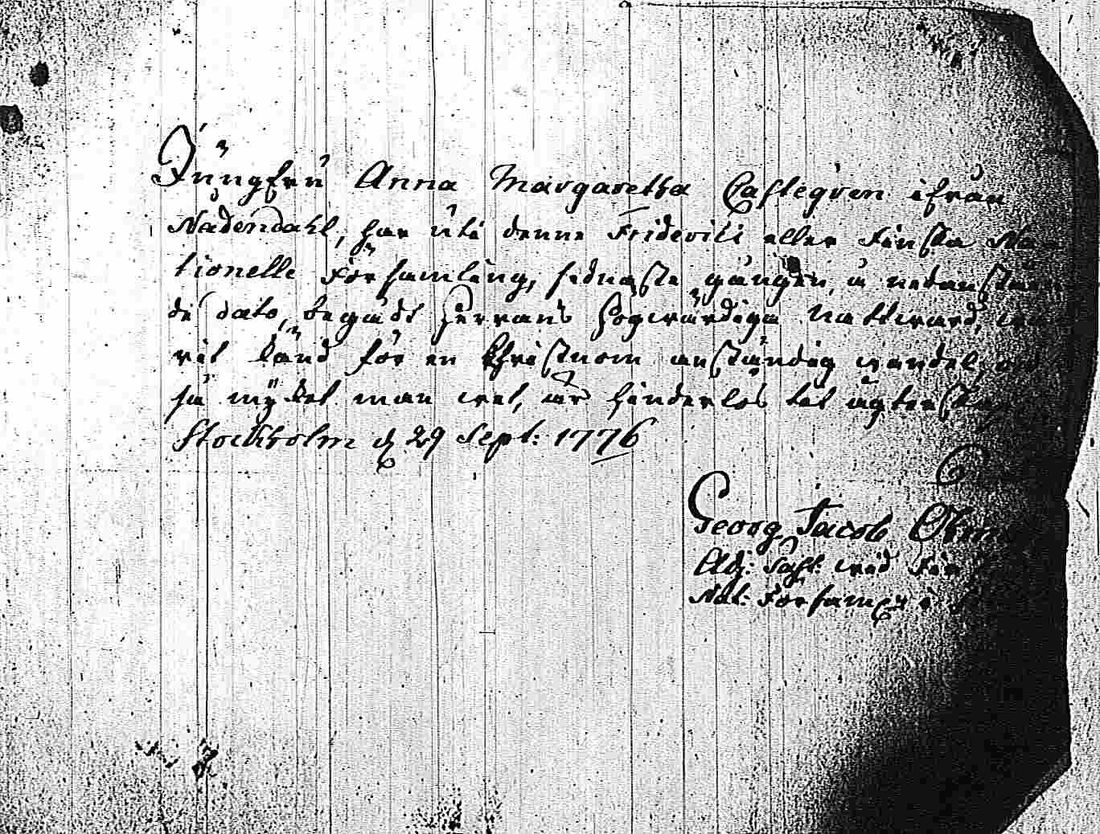 Jungfru Anna Margaretha Castegren ifrån
Nådendahl, har uti denna Friderici eller Finska Na-
tionelle Församling, sednaste gången, å nedanstå
de dato, begådt Herrans Högwürdiga Nattward,
rit känd för en Christnom anständig wandel,
så mycket man wet, är hinderlös til ägtensk
Stockholm d 29 Sept: 1776
Georg Jacob
Adj: Past: wid Fin
Nat: Församl: i